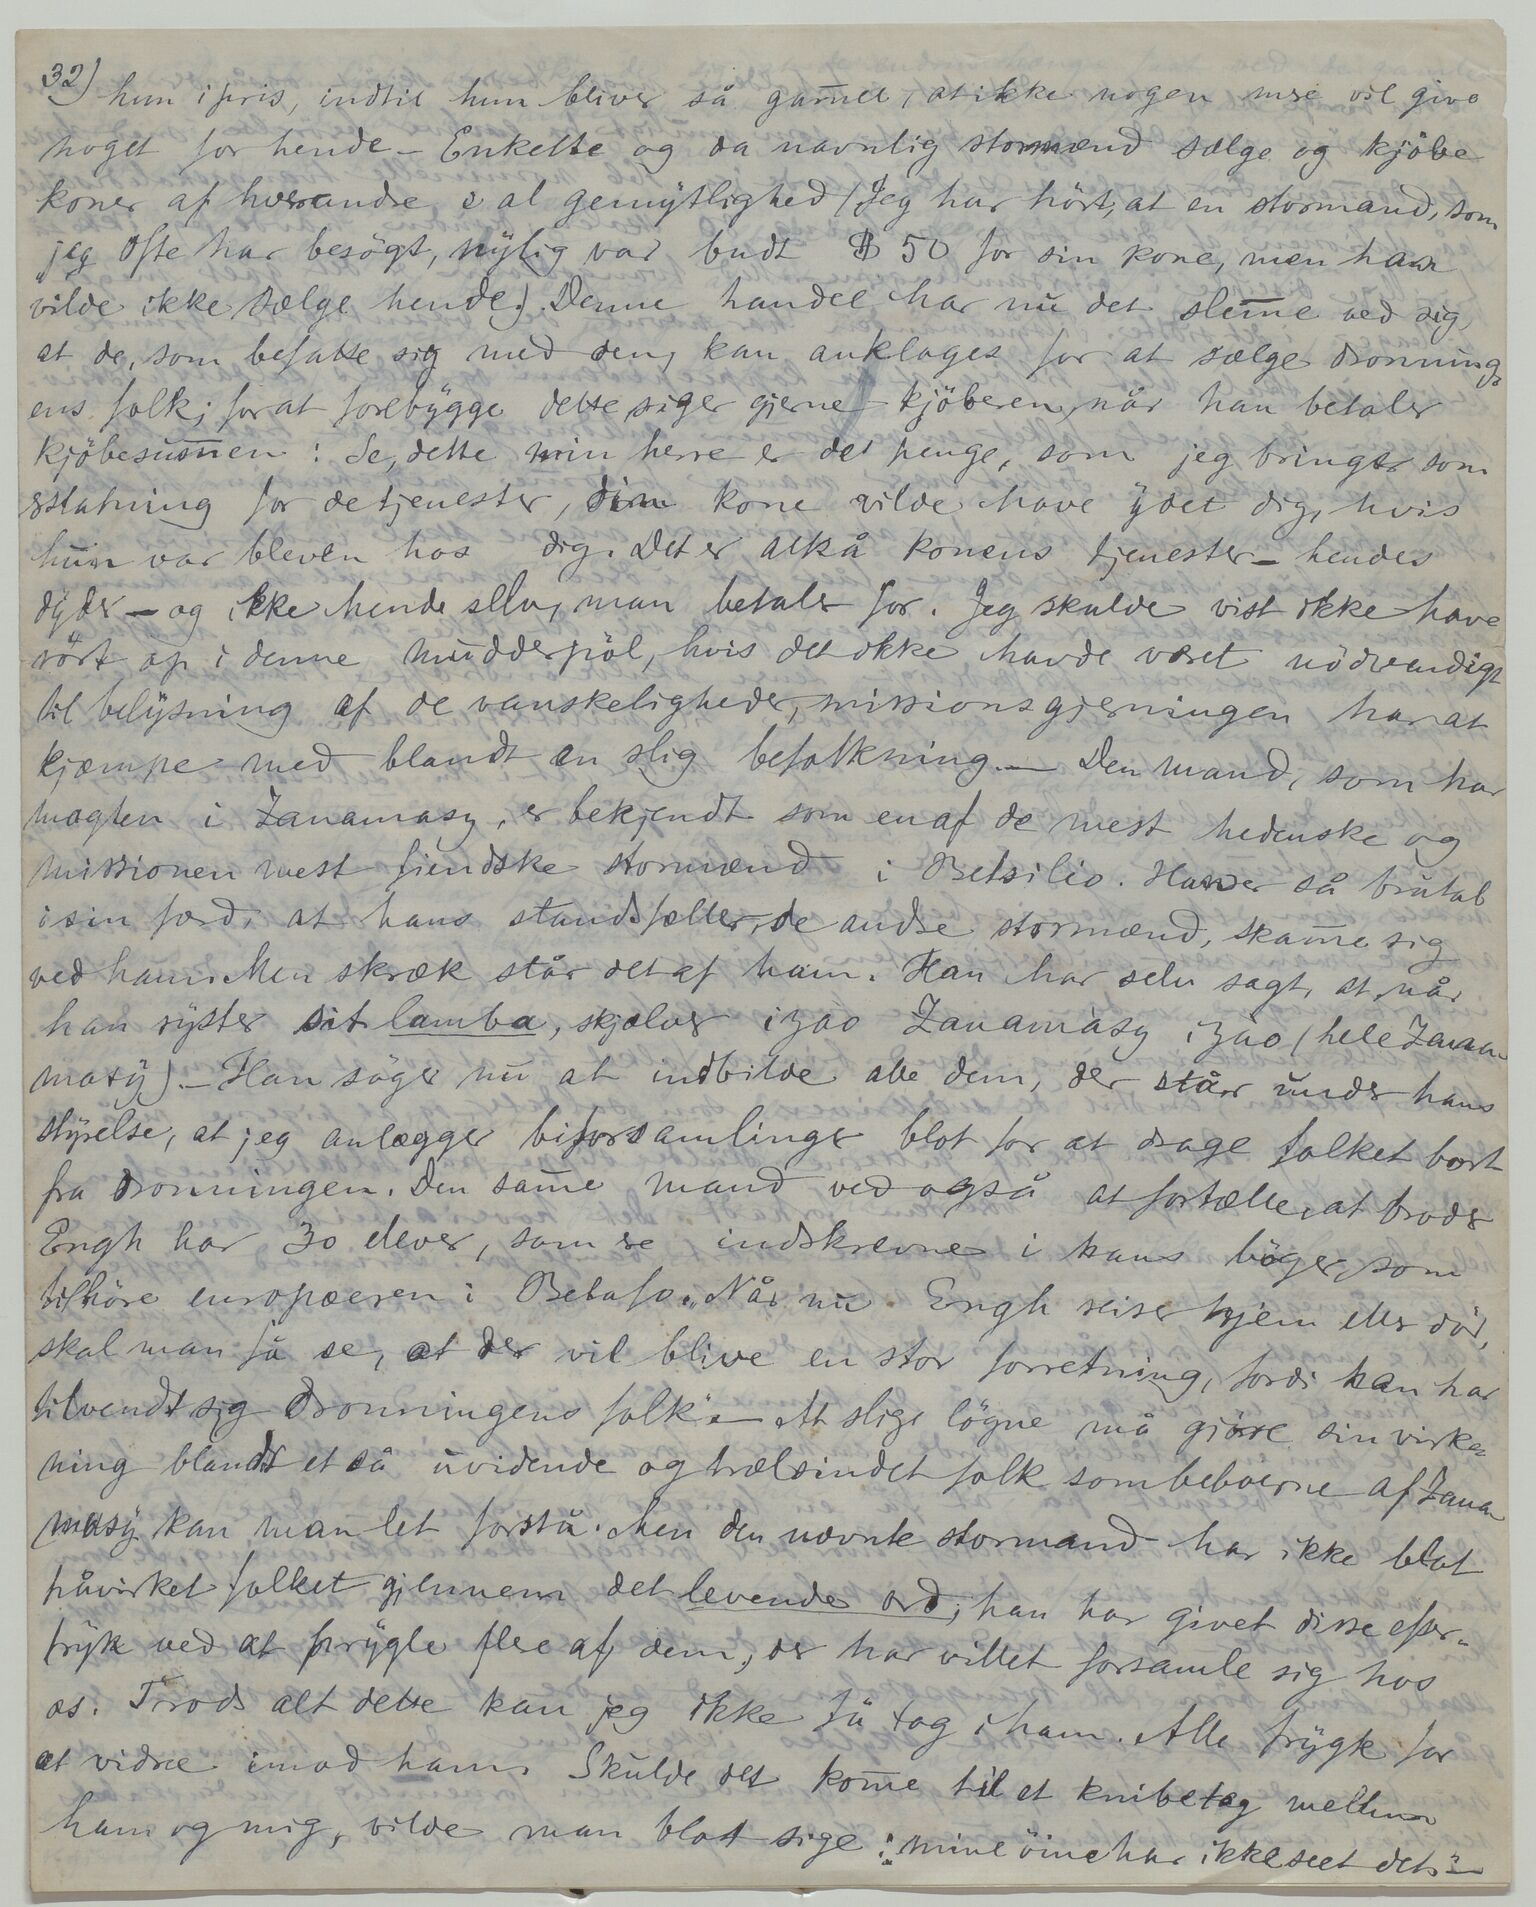 32)
hun i pris, indtil hun bliver så gam̅el, at ikke nogen mere vil give
noget for hende – Enkelte og da navnlig stormænd sælge og kjöbe
koner af hverandre i al gemytlighed (Jeg har hört, at en stormand, som
jeg ofte har besögt, nylig var budt $ 50 for sin kone, men han
vilde ikke sælge hende). Denne handel har nu det slem̅e ved sig,
at de, som befatte sig med den, kan anklages for at sælge dronning-
ens folk; for at forebygge dette siger gjerne kjöberen, når han betaler
kjöbesum̅en: Se, dette min herre er det penge, som jeg bringer som
erstatning for de tjenester, din kone vilde have ydet dig, hvis
hun var bleven hos dig. Det er altså konens tjenester – hendes
dyder – og ikke hende selv, man betaler for. Jeg skulde vist ikke have
rört op i denne mudderpöl, hvis det ikke havde været nödvendigt
til belysning af de vanskeligheder, missionsgjerningen har at
kjæmpe med blandt en slig befolkning. – Den mand, som har
magten i Zanamasy, er bekjendt som en af de mest hedenske og
missionen mest fiendske stormænd i Betsileo. Han er så brutal
i sin færd, at hans standsfæller, de andre stormænd, skam̅e sig
ved ham. Men skræk står det af ham. Han har selv sagt, at når
han ryster sit lamba, skjælver izao Zanamasy izao (hele Zanam-
masy). – Han söger nu at indbilde alle dem, der står under hans
styrelse, at jeg anlægger biforsamlinger blot for at drage folket bort
fra dronningen. Den sam̅e mand ved også at fortælle, at broder
Engh har 30 elever, som ere indskrevne i hans böger, som
tilhöre europæeren i Betafo. "Når nu Engh reiser hjem eller dör,
skal man få se, at der vil blive en stor forretning, fordi han har
tilvendt sig dronningens folk" – At slige lögne må gjöre sin virke-
ning blandt et så uvidende og trælsindet folk som beboerne af Zanam-
masy kan man let forstå. Men den nævnte stormand har ikke blot
påvirket folket gjennem det levende ord; han har givet disse efter-
tryk ved at prygle flere af dem, der har villet forsamle sig hos
os. Trods alt dette kan jeg ikke få tag i ham. Alle frygte for
at vidne imod ham. Skulde det kom̅e til et knibetag mellem
ham og mig, vilde man blot sige: "mine öine har ikke seet det" –